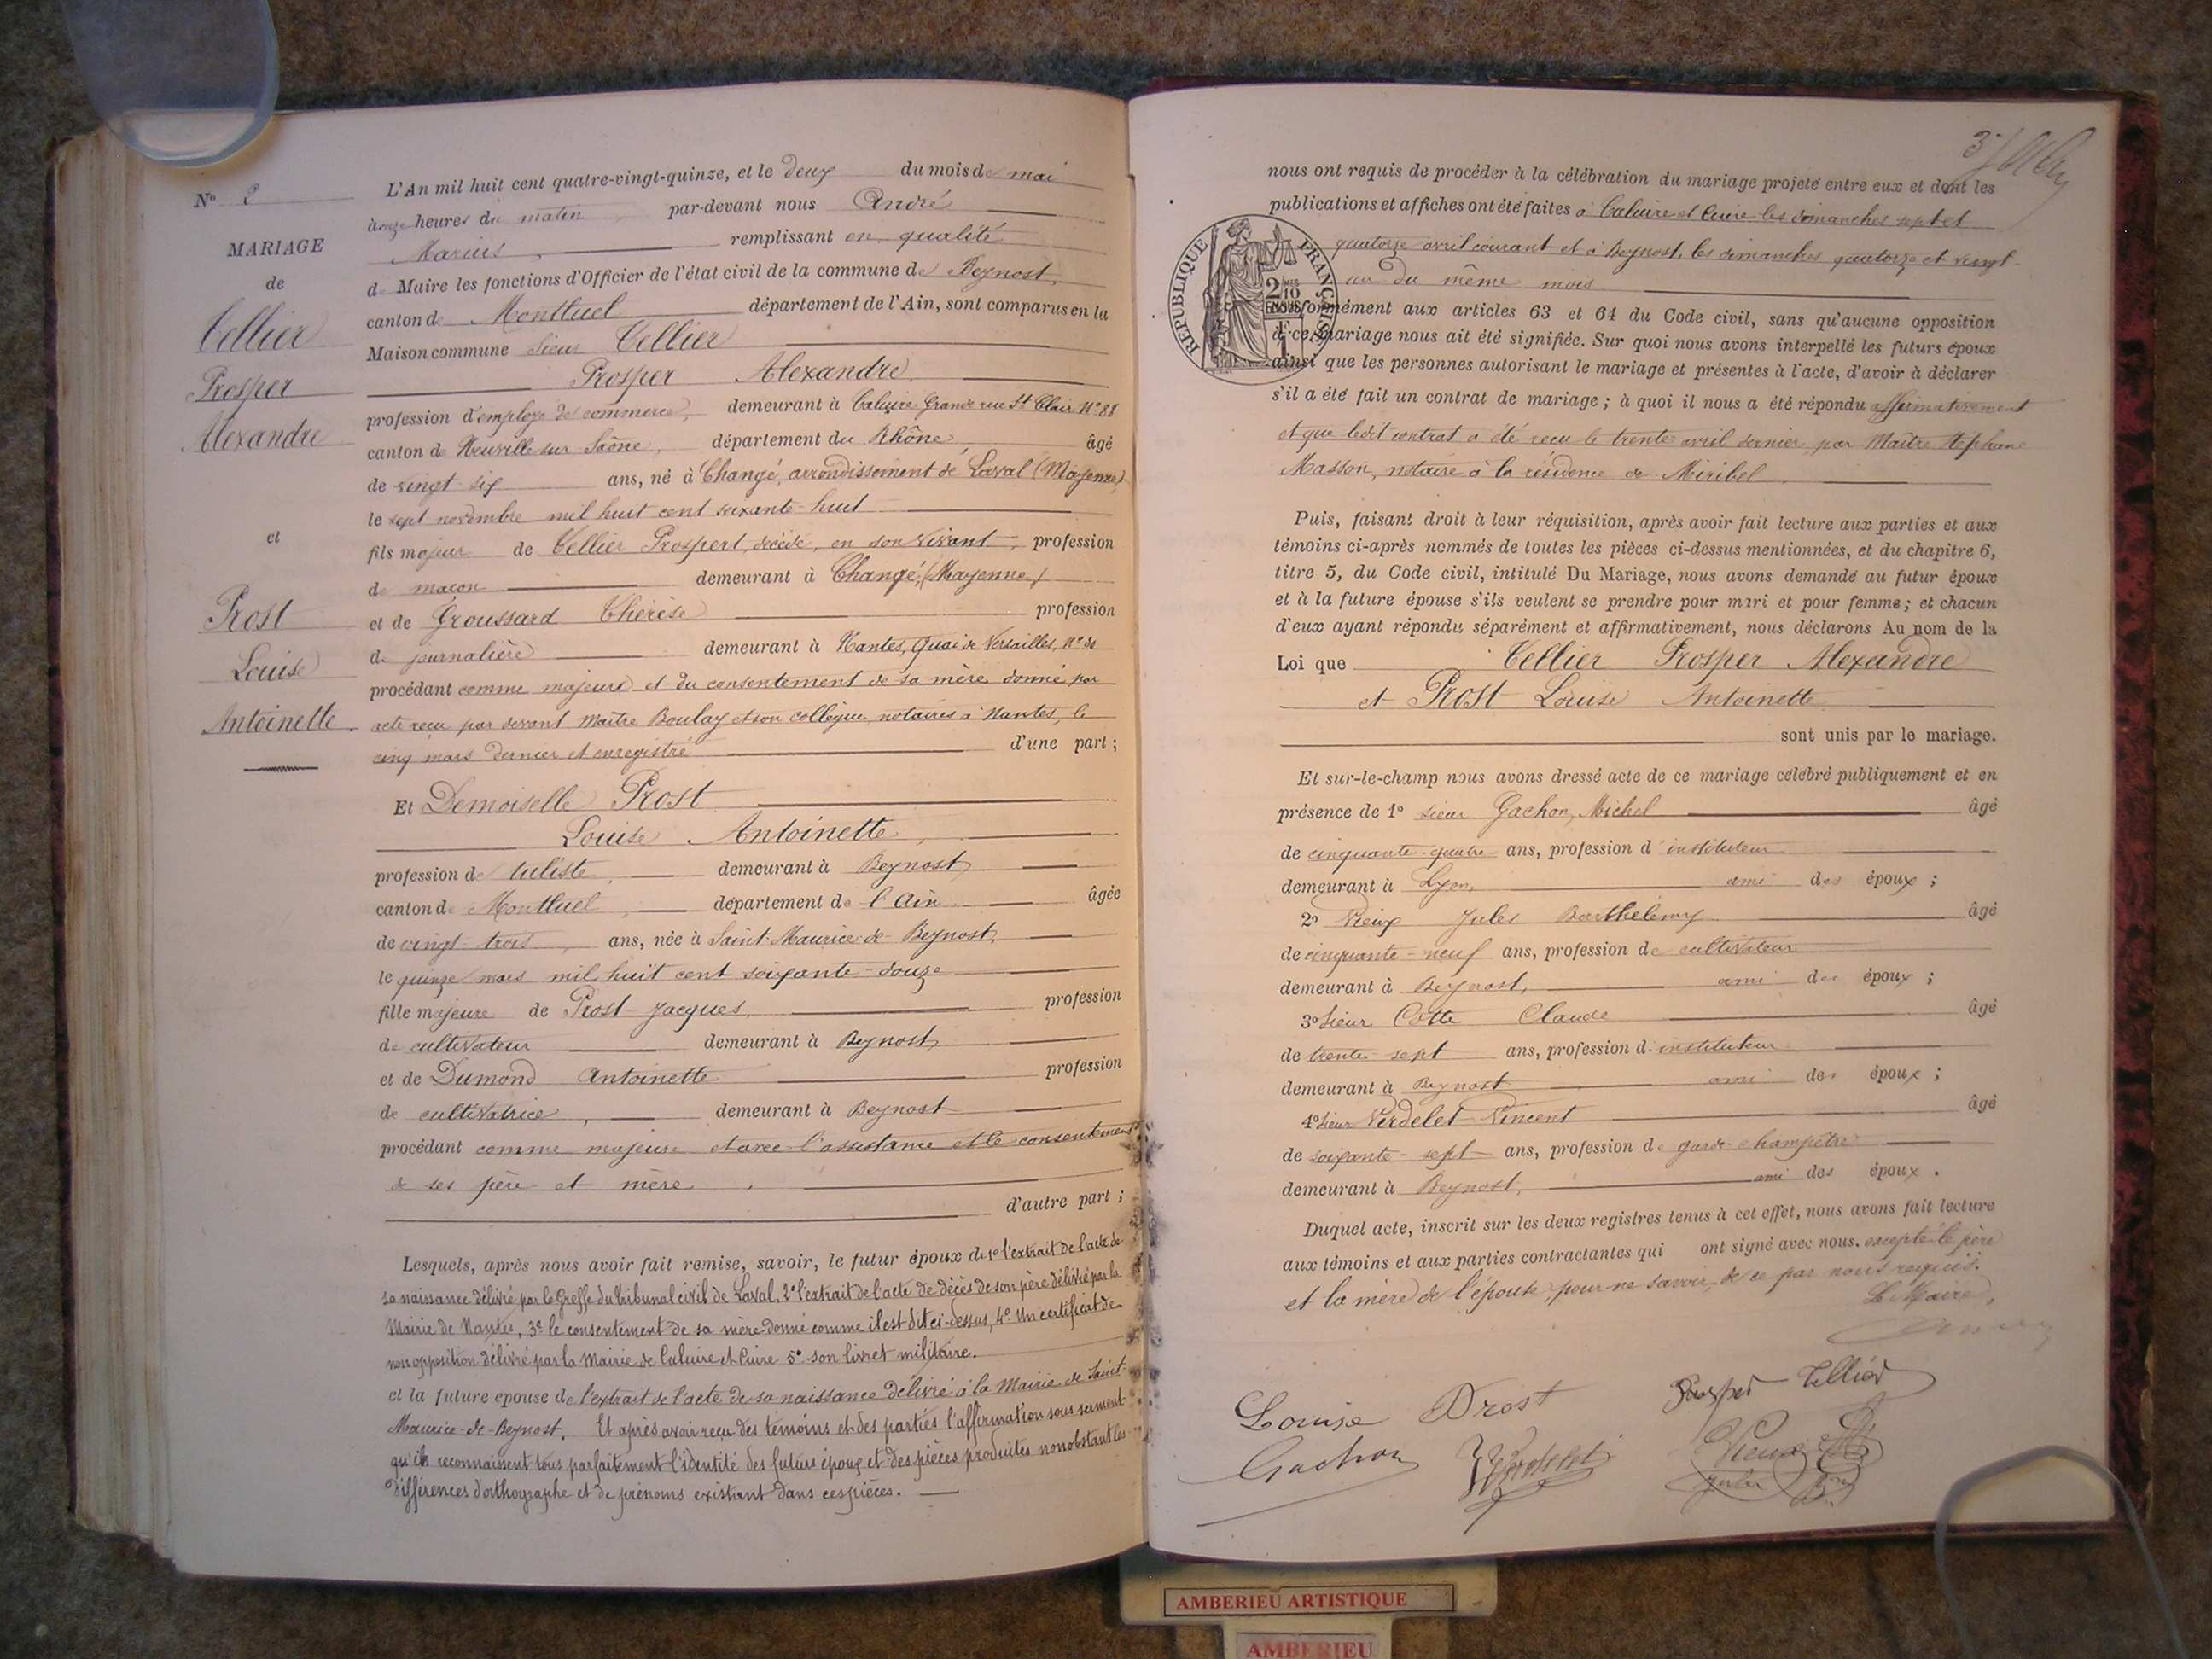 N° 2
MARIAGE
de
Tellier
Prosper
Alexandre
et
Prost
Louise
Antoinette
L'An mil huit cent quatre-vingt-quinze, et le deux du mois de mai
à onze heures du matin par-devant nous André
Marius, remplissant en qualité
de Maire les fonctions d'Officier de l'état civil de la commune de Beynost,
canton de Montluel département de l'Ain, sont comparus en la
Maison commune Sieur Tellier
Prosper Alexandre
profession d'employé de commerce, demeurant à Caluire Grande rue St Clair N° 88
canton de Neuville sur Saône, département du Rhône âgé
de vingt six ans, né à Changé, arrondissement de Laval (Mayenne)
le sept novembre mil huit cent soixante-huit
fils majeur de Tellier Prospert, décédé, en son vivant, profession
de maçon demeurant à Changé, (Mayenne)
et de Groussard Thérèse profession
de journalière demeurant à Nantes, Quai de Versailles, N°
procédant comme majeur et du consentement de sa mère donné par
acte reçu par devant Maître Boulay et son collègue, notaires à Nantes, le
cinq mars dernier et enregistré d'une part ;
Et Demoiselle Prost
Louise Antoinette,
profession de tuliste demeurant à Beynost,
canton de Montluel, département de l'Ain âgée
de vingt-trois, ans, née à Saint-Maurice-de-Beynost,
le quinze mars mil huit cent soixante-douze
fille majeure de Prost Jacques, profession
de cultivateur demeurant à Beynost,
et de Dumond Antoinette profession
de cultivatrice, demeurant à Beynost
procédant comme majeure et avec l'assistance et le consentement
de ses père et mère
d'autre part ;
Lesquels, après nous avoir fait remise, savoir, le futur époux de 1° l'extrait de l'acte de
sa naissance délivré par le Greffe du tribunal civil de Laval, 2° l'extrait de l'acte de décès de son père délivré par la
Mairie de Nantes, 3° le consentement de sa mère donné comme il est dit ci-dessus, 4° Un certificat de
non opposition délivré par la Mairie de Caluire et Cuire 5° son livret militaire.
et la future épouse de l'extrait de l'acte de sa naissance délivré à la Mairie de Saint-
Maurice-de-Beynost. Et après avoir reçu des témoins et des parties l'affirmation sous serment
qu'ils reconnaissent tous parfaitement l'identité des futurs époux et des pièces produites nonobstant les
différences d'orthographe et de prénoms existant dans ces pièces.
3
nous ont requis de procéder à la célébration du mariage projeté entre eux et dont les
publications et affiches ont été faites à Caluire et Cuire les dimanches sept et
quatorze avril courant et à Beynost, les dimanches quatorze et vingt-
un du même mois
RÉPUBLIQUE FRANÇAISE
2/10
conformément aux articles 63 et 64 du Code civil, sans qu'aucune opposition
à ce mariage nous ait été signifiée. Sur quoi nous avons interpellé les futurs époux
ainsi que les personnes autorisant le mariage et présentes à l'acte, d'avoir à déclarer
s'il a été fait un contrat de mariage ; à quoi il nous a été répondu affirmativement
et que ledit contrat a été reçu le trente avril dernier par Maître Stéphane
Masson, notaire à la résidence de Miribel
Puis, faisant droit à leur réquisition, après avoir fait lecture aux parties et aux
témoins ci-après nommés de toutes les pièces ci-dessus mentionnées, et du chapitre 6,
titre 5, du Code civil, intitulé Du Mariage, nous avons demandé au futur époux
et à la future épouse s'ils veulent se prendre pour mari et pour femme ; et chacun
d'eux ayant répondu séparément et affirmativement, nous déclarons Au nom de la
Loi que Tellier Prosper Alexandre
et Prost Louise Antoinette
sont unis par le mariage.
Et sur-le-champ nous avons dressé acte de ce mariage célébré publiquement et en
présence de 1° sieur Gachon, Michel âgé
de cinquante-quatre ans, profession d'instituteur
demeurant à Lyon, ami des époux ;
2° Vieux Jules Barthélemy âgé
de cinquante-neuf ans, profession de cultivateur
demeurant à Beynost, ami des époux ;
3° Sieur Cotte Claude âgé
de trente-sept ans, profession d'instituteur
demeurant à Beynost ami des époux ;
4° Sieur Verdelet Vincent âgé
de soixante-sept ans, profession de garde-champêtre
demeurant à Beynost, ami des époux.
Duquel acte, inscrit sur les deux registres tenus à cet effet, nous avons fait lecture
aux témoins et aux parties contractantes qui ont signé avec nous. excepté le père
et la mère de l'épouse, pour ne savoir, de ce par nous requis.
Le Maire,
Louise Prost Prosper Tellier
Gachon Verdelet Vieux
AMBERIEU ARTISTIQUE
AMBERIEU